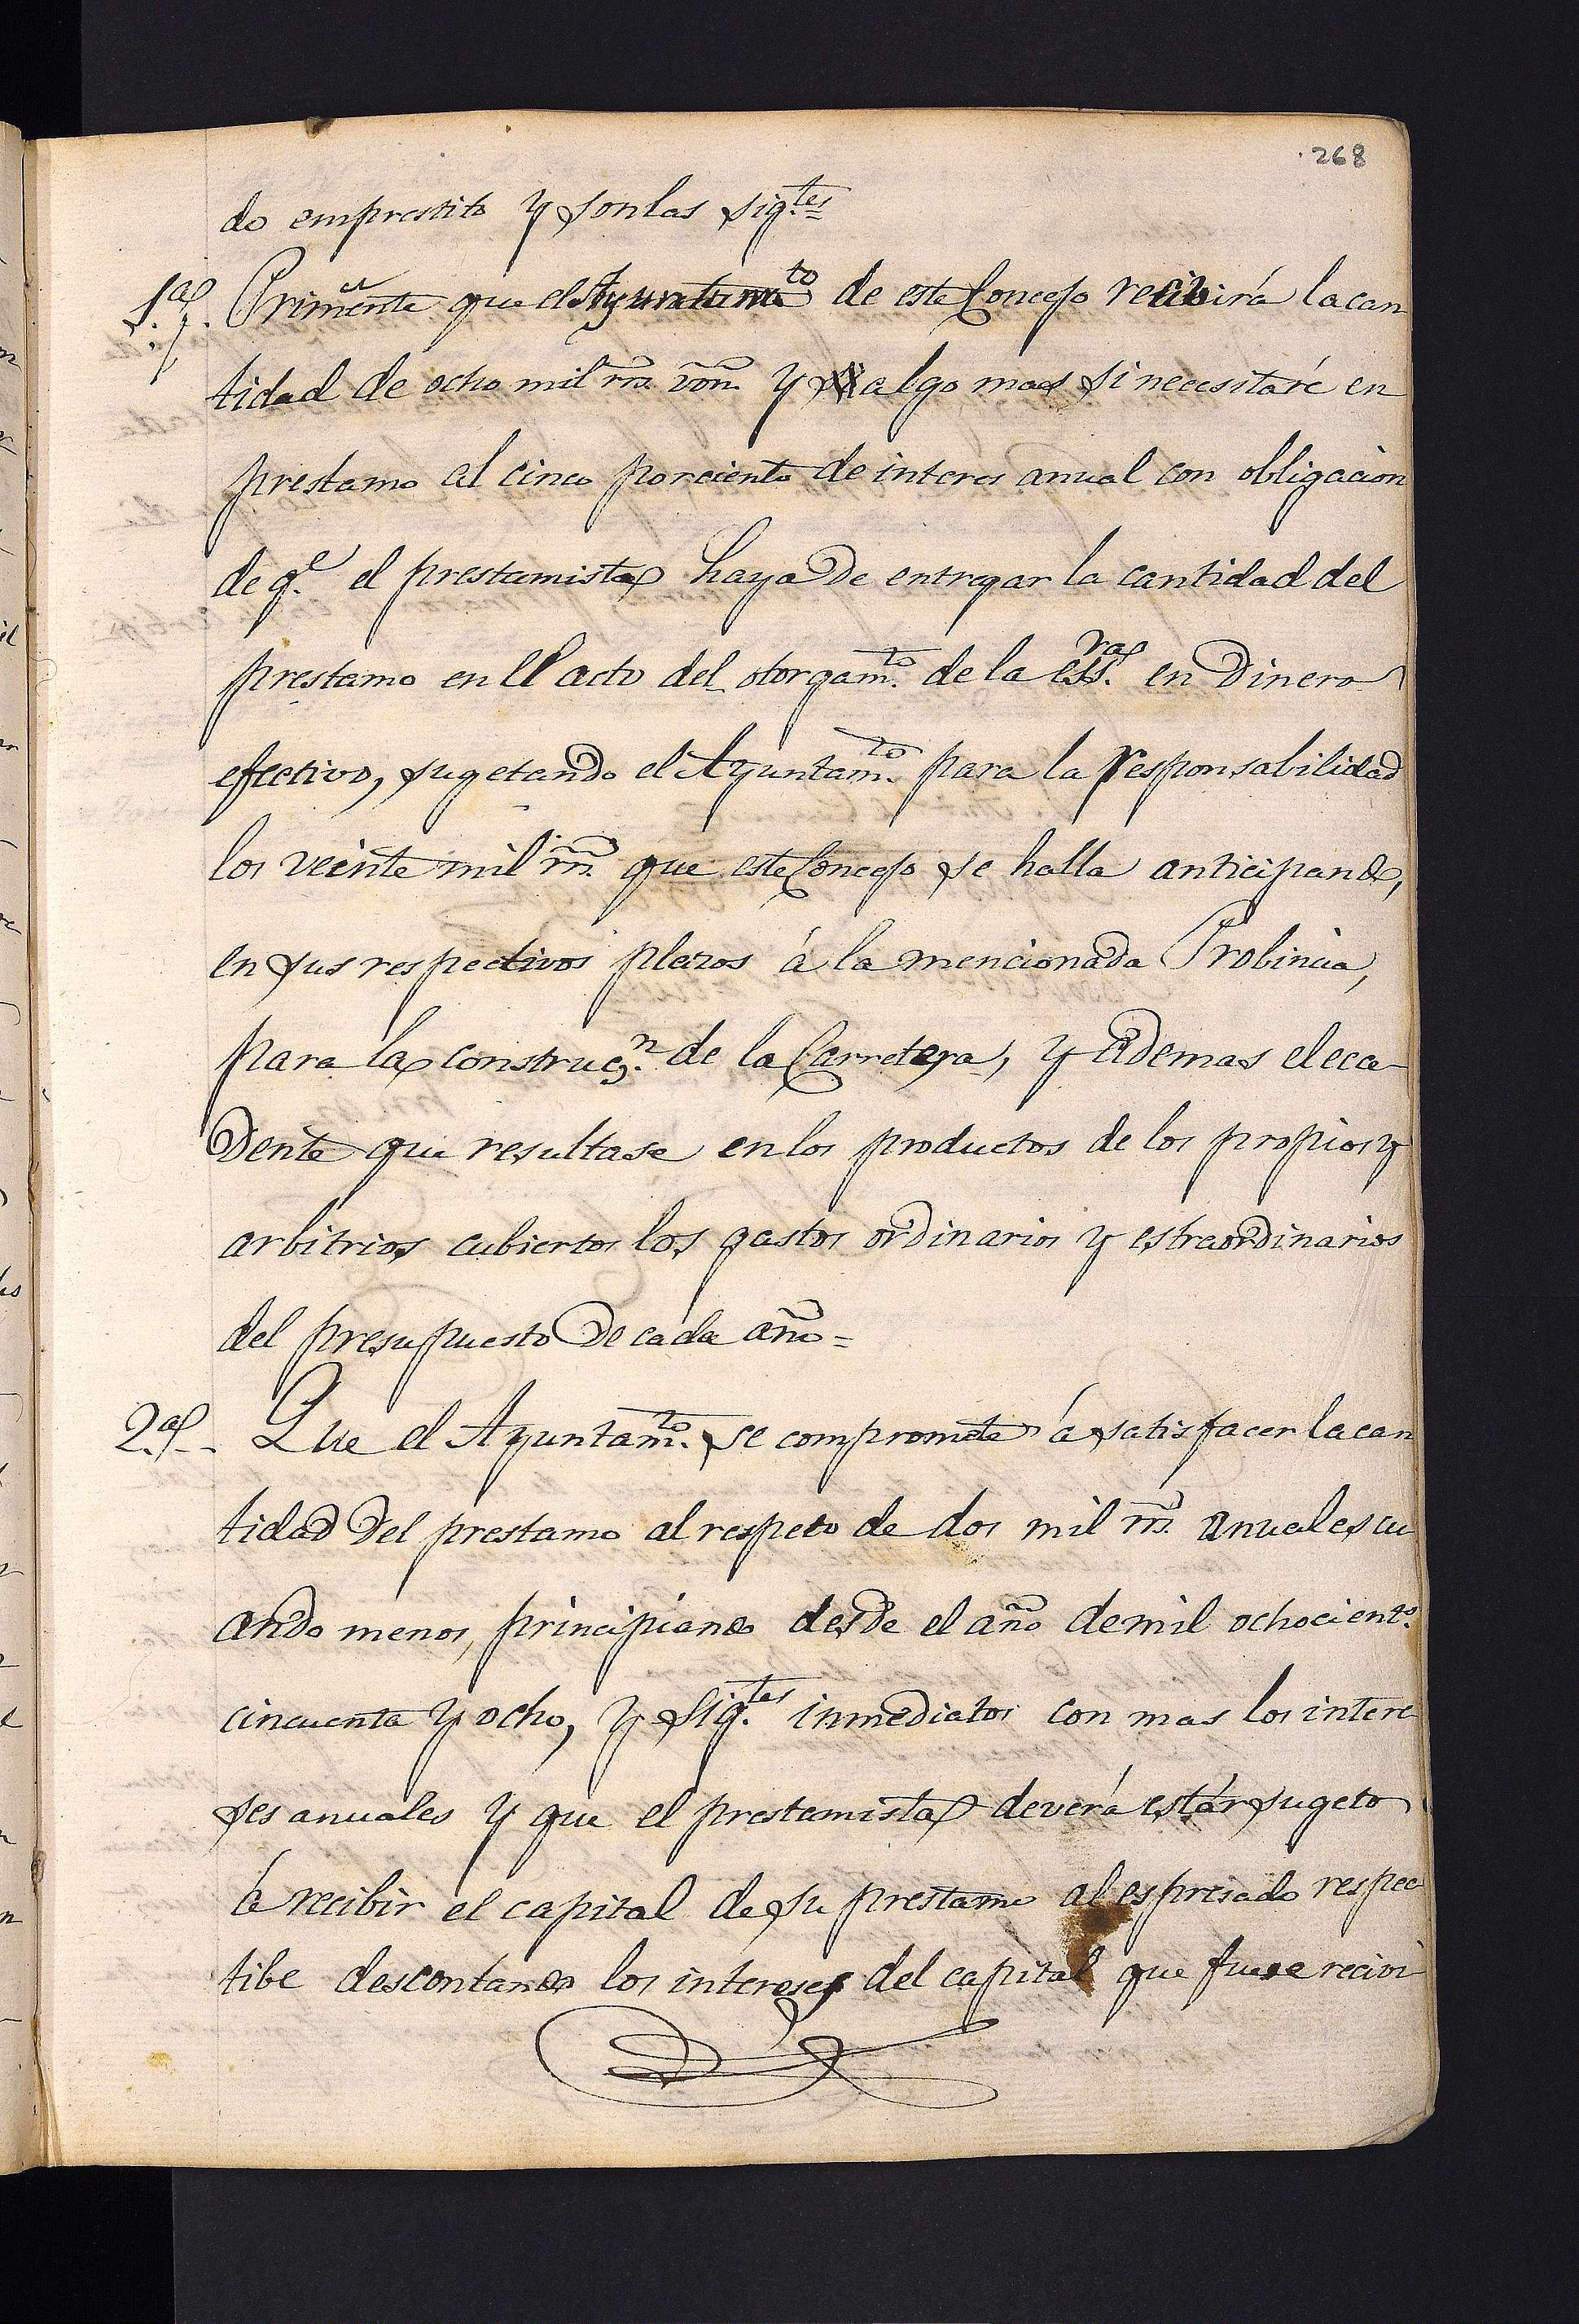 268
do emprestito y son las sig.tes =
1.a Primte que el Ayuntamto de este Concejo recibirá la can
tidad de ocho mil rrs. von. y algo mas si necesitaré en
prestamo al cinco por ciento de interes anual con obligacion
de q.e el prestamista haya de entregar la cantidad del
prestamo en el acto del otorgam.to de la ess.ra en dinero
efectivo, sugetando el Ayuntam.to para la responsabilidad
los veinte mil rrs. que este Concejo se halla anticipando,
en sus respectivos plazos á la mencionada Probincia,
para la construcs.n de la Carretera, y ademas el eca-
dente que resultase en los productos de los propios y
arbitrios, cubiertos los gastos ordinarios y estraordinarios
del presupuesto de cada año =
2.a - Que el Ayuntam.to se comprometa á satisfacer la can
tidad del prestamo al respeto de dos mil rrs. anuales cu
ando menos, principiando desde el año de mil ochocient.s
cincuenta y ocho, y sig.tes inmediatos con mas los intere-
ses anuales y que el prestamista deverá estár sugeto
á recibir el capital de su prestamo al espresado respec
tibe descontando los intereses del capital que fuese recivi